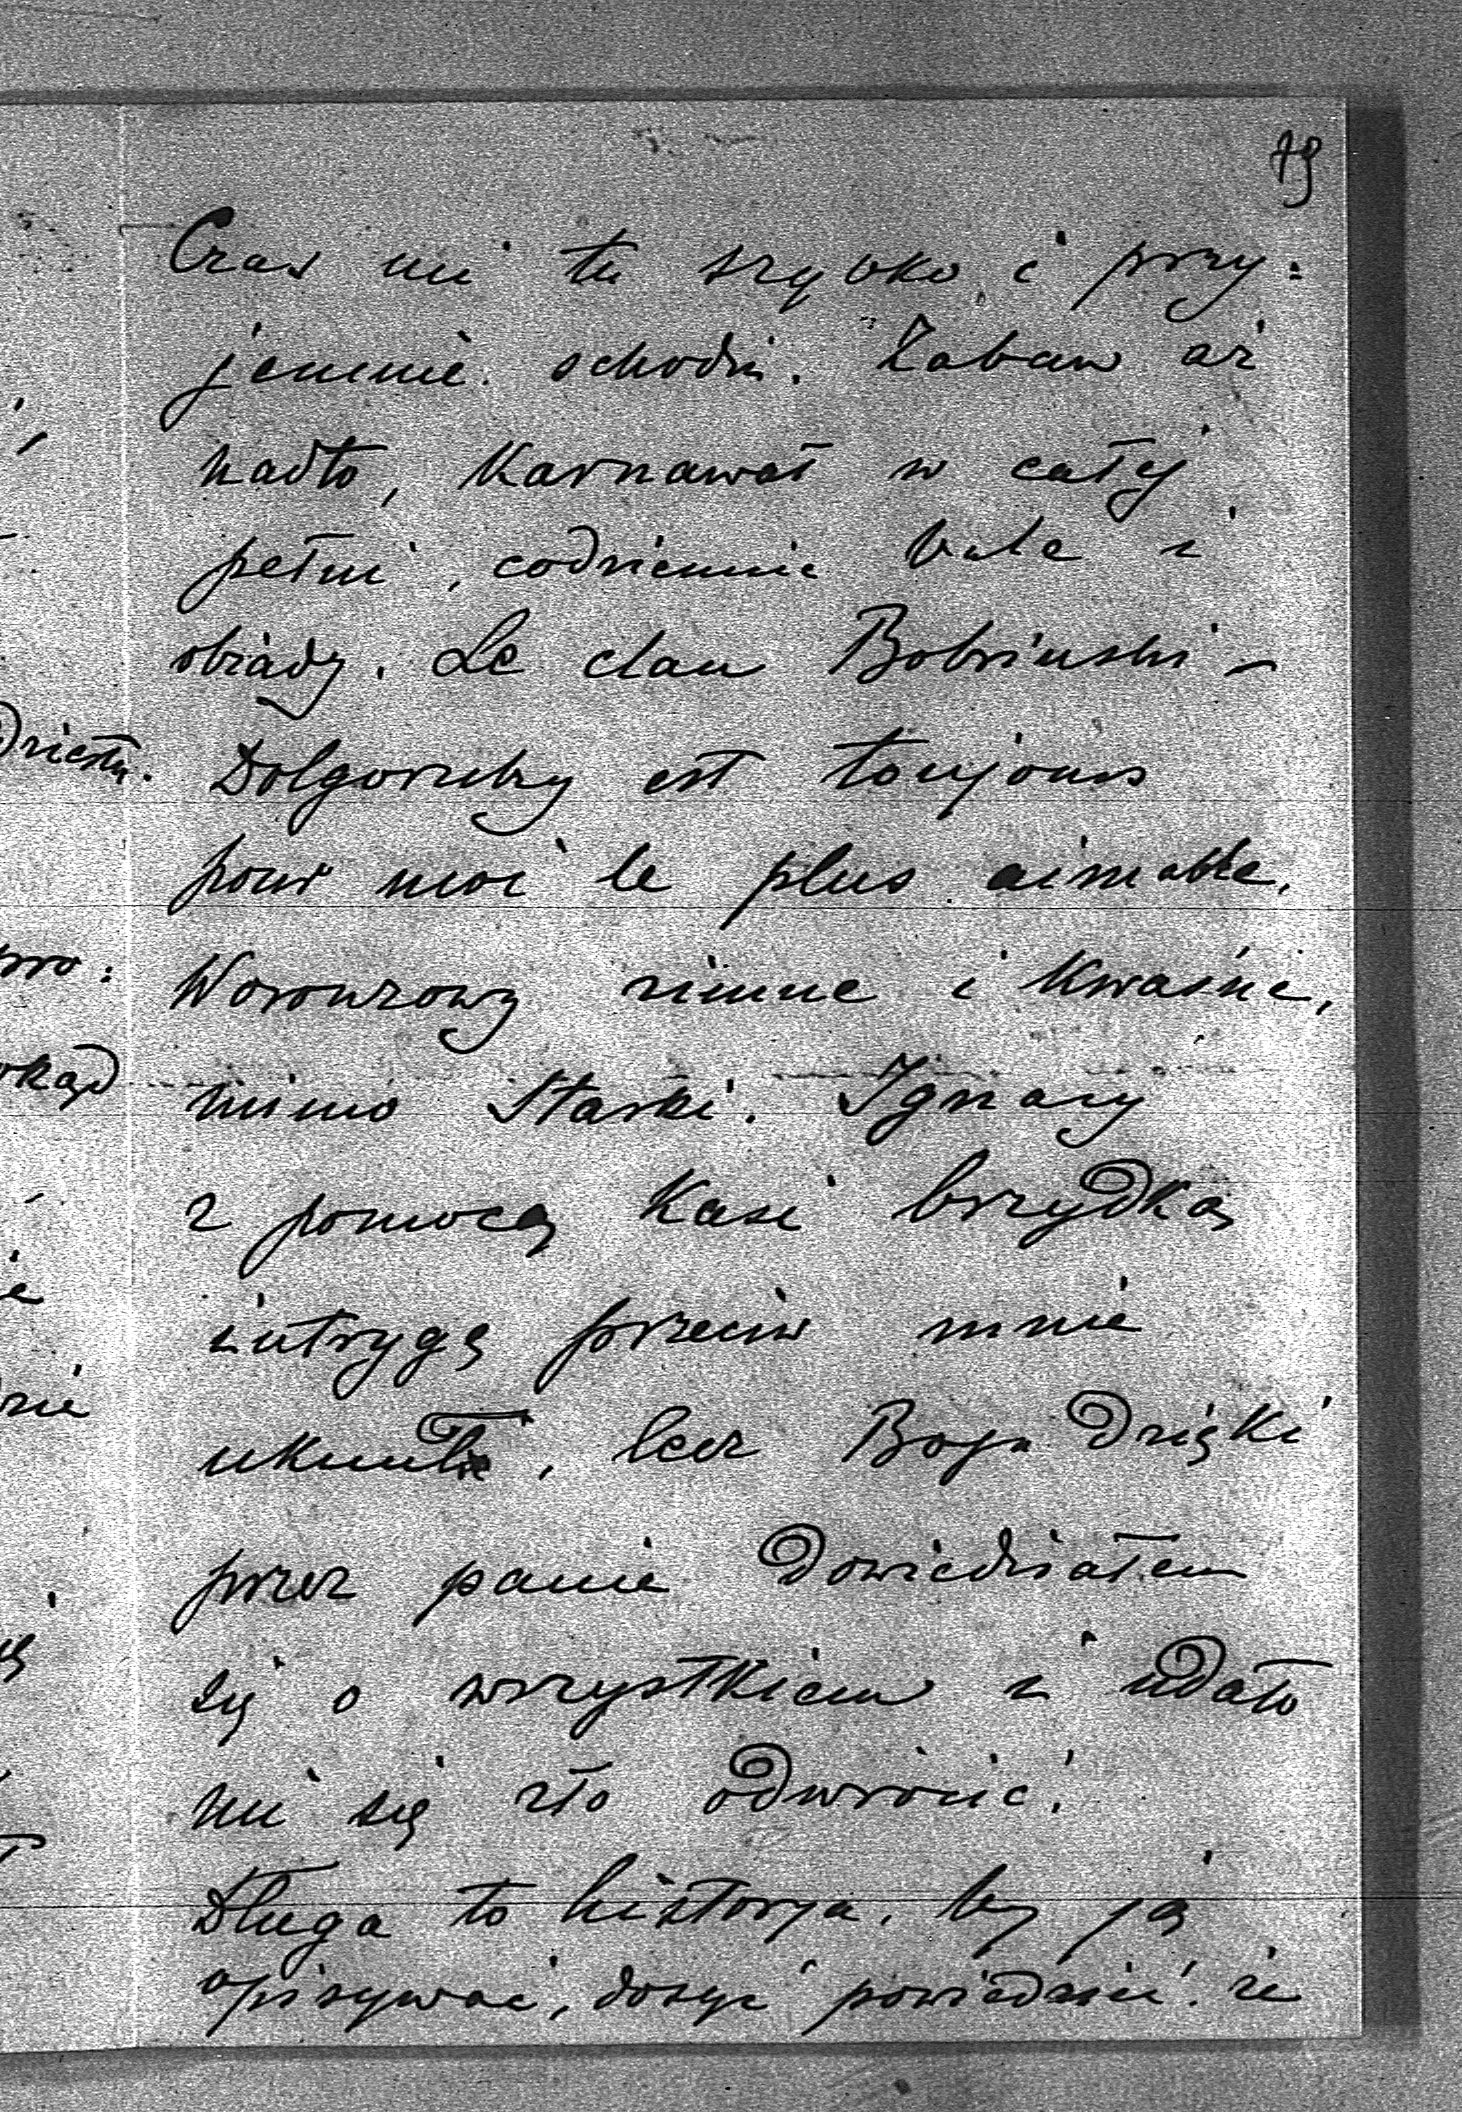 79
Czas mi tu szybko i przy=
jemnie schodzi. Zabaw aż
nadto, Karnawał w całej
pełni, codziennie bale i
obiady. Le clan Bobrinski -
Dolgoruky est toujours
pour moi le plus aimable.
Woronzowy zimne i kwaśne,
mimo Starki. Ignacy
z pomocą Kasi brzydką
intrygę przeciw mnie
uknuł, lecz Bogu Dzięki
przez panie Dowiedziałem
się o wszystkiem i udało
mi się zło odwrócić.
Długa to historya, by ją
opisywać, dosyć powiedzieć że